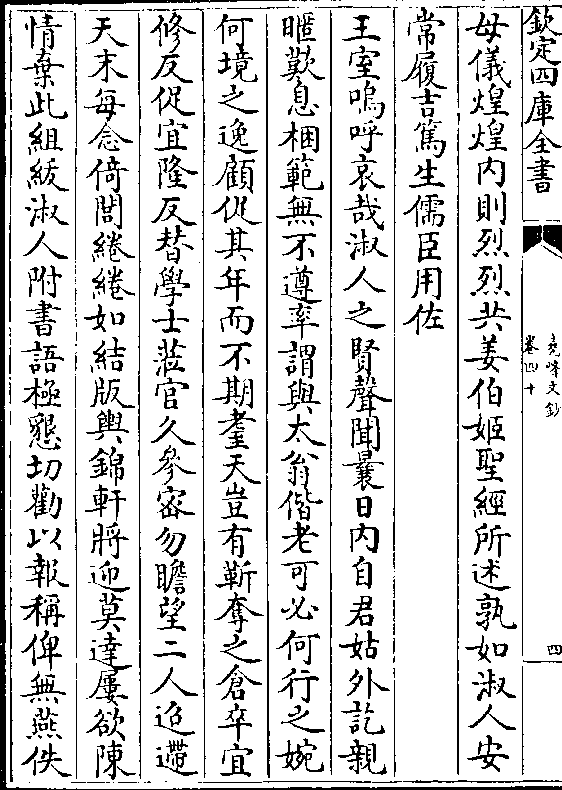 欽定四庫全書
堯峰文鈔
卷四十
四
母儀煌煌内則烈烈共姜伯姬聖經所述孰如淑人安
常履吉篤生儒臣用佐
王室嗚呼哀哉淑人之賢聲聞曩日内自君姑外訖親
暱歎息梱範無不遵率謂與太翁偕老可必何行之婉
何境之逸顧促其年而不期耋天豈有靳奪之倉卒宜
修反促宜隆反替學士蒞官久參密勿瞻望二人迢遰
天末每念倚閭綣綣如結版輿錦軒將迎莫達屢欲陳
情棄此組紱淑人附書語極懇切勸以報稱俾無燕佚